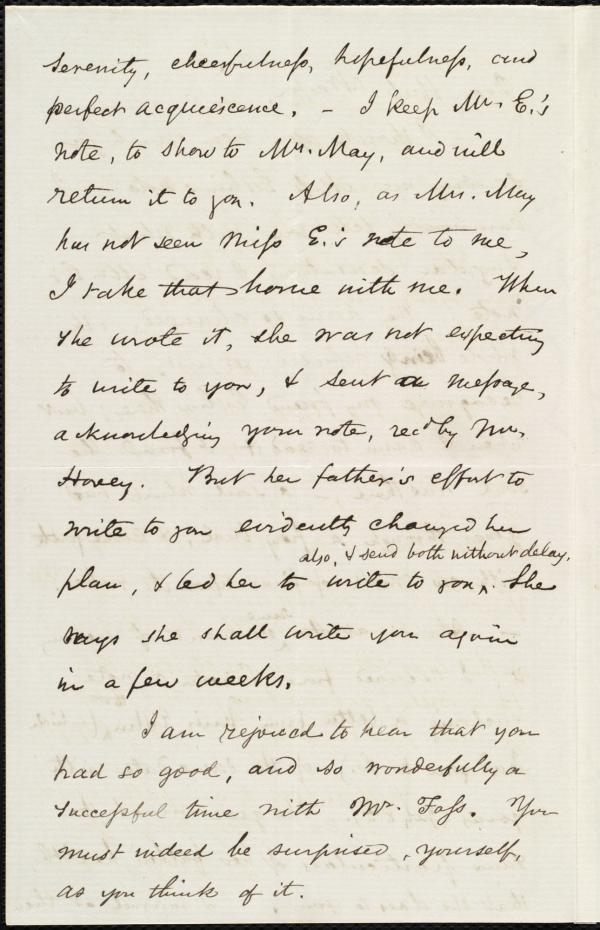 serenity, cheerfulness, hopefulness, and
perfect acquiescence. - I keep Mr. E.'s
note, to show to Mr. May, and will
return it to you. Also, as Mrs. May
has not seen Miss E.'s note to me,
I take that home with me. When
she wrote it, she was not expecting
to write to you, & sent a message,
acknowledging your note, rec'd by Mr.
Hovey. But her father's effort to
write to you evidently changed her
also, & send both without delay.
plan, & led her to write to you ‸. She
says she shall write you again
in a few weeks.
I am rejoiced to hear that you
had so good, and so wonderfully a
successful time with Mr. Foss. You
must indeed be surprised, yourself,
as you think of it.